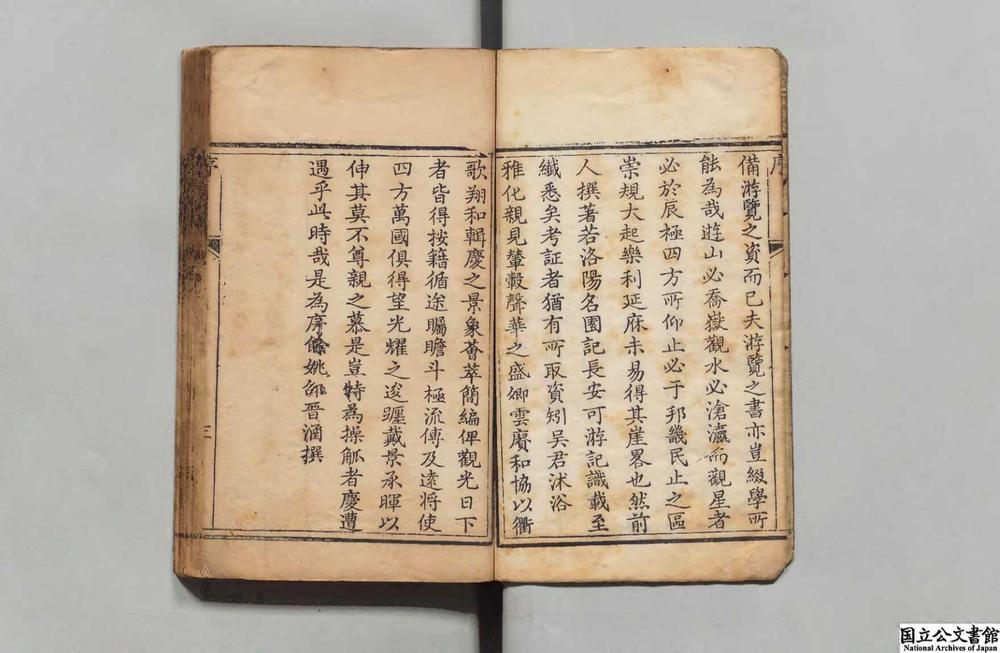 序
備游覽之資而已夫游覽之書亦豈綴學所
能為哉遊山必喬嶽觀水必滄瀛而觀星者
必於辰極四方所仰止必于邦畿民止之區
崇規大起樂利延庥未易得其崖畧也然前
人撰著若洛陽名園記長安可游記識載至
纖悉矣考証者猶有所取資矧吳君沐浴
雅化親見輦轂聲華之盛卿雲賡和協以衢
歌翔和輯慶之景象薈萃簡編俾觀光日下
者皆得按籍循途矚瞻斗極流傳及遠將使
四方萬國俱得望光耀之逡躔戴景承暉以
伸其莫不尊親之慕是豈特為操觚者慶遭
遇乎此時哉是為序餘姚邵晉涵撰
序
三
国立公文書館
National Archives of Japan